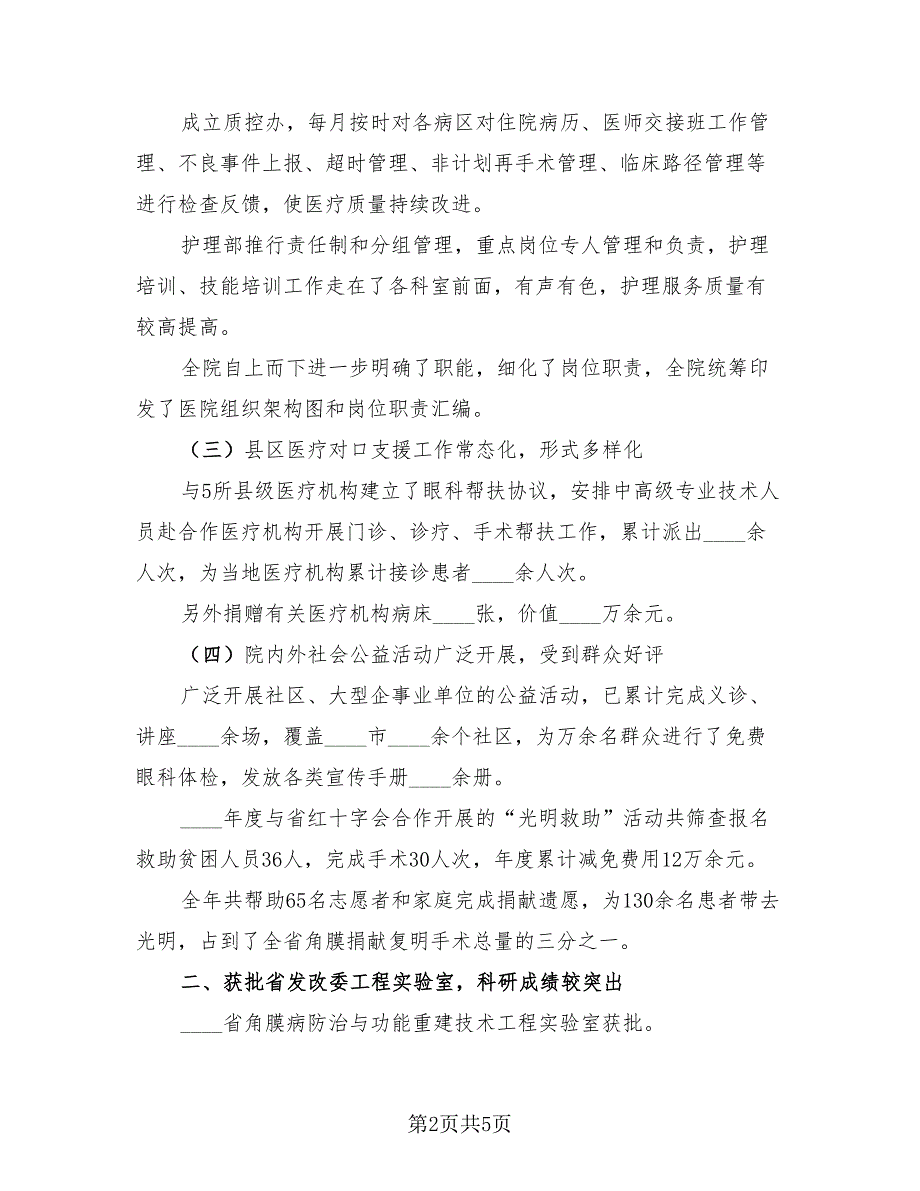 成立质控办，每月按时对各病区对住院病历、医师交接班工作管
理、不良事件上报、超时管理、非计划再手术管理、临床路径管理等
进行检查反馈，使医疗质量持续改进。
护理部推行责任制和分组管理，重点岗位专人管理和负责，护理
培训、技能培训工作走在了各科室前面，有声有色，护理服务质量有
较高提高。
全院自上而下进一步明确了职能，细化了岗位职责，全院统筹印
发了医院组织架构图和岗位职责汇编。
（三）县区医疗对口支援工作常态化，形式多样化
与5所县级医疗机构建立了眼科帮扶协议，安排中高级专业技术人
员赴合作医疗机构开展门诊、诊疗、手术帮扶工作，累计派出____余
人次，为当地医疗机构累计接诊患者____余人次。
另外捐赠有关医疗机构病床____张，价值____万余元。
（四）院内外社会公益活动广泛开展，受到群众好评
广泛开展社区、大型企事业单位的公益活动，已累计完成义诊、
讲座____余场，覆盖____市____余个社区，为万余名群众进行了免费
眼科体检，发放各类宣传手册____余册。
____年度与省红十字会合作开展的“光明救助”活动共筛查报名
救助贫困人员36人，完成手术30人次，年度累计减免费用12万余元。
全年共帮助65名志愿者和家庭完成捐献遗愿，为130余名患者带去
光明，占到了全省角膜捐献复明手术总量的三分之一。
二、获批省发改委工程实验室，科研成绩较突出
____省角膜病防治与功能重建技术工程实验室获批。
第2页共5页